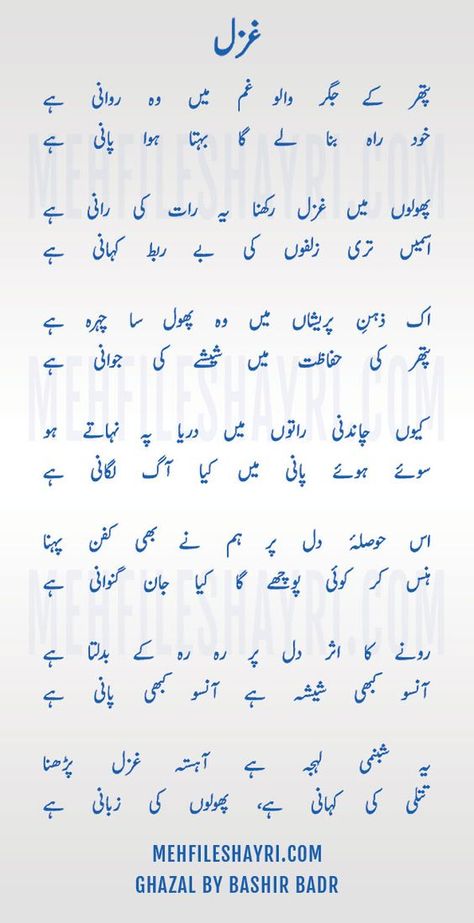 غزل
پتھر کے جگر والو غم میں وہ روانی ہے
خود راہ بنا لے گا بہتا ہوا پانی ہے
پھولوں میں غزل رکھنا یہ رات کی رانی ہے
اسمیں تری زلفوں کی بے ربط کہانی ہے
اک ذہنِ پریشاں میں وہ پھول سا چہرہ ہے
پتھر کی حفاظت میں شیشے کی جوانی ہے
کیوں چاندنی راتوں میں دریا پہ نہاتے ہو
سوئے ہوئے پانی میں کیا آگ لگانی ہے
اس حوصلۂ دل پر ہم نے بھی کفن پہنا
ہنس کر کوئی پوچھے گا کیا جان گنوانی ہے
رونے کا اثر دل پر رہ رہ کے بدلتا ہے
آنسو کبھی شیشہ ہے آنسو کبھی پانی ہے
یہ شبنمی لہجہ ہے آہستہ غزل پڑھنا
تتلی کی کہانی ہے، پھولوں کی زبانی ہے
MEHFILESHAYRI.COM
GHAZAL BY BASHIR BADR
MEHFILESHAYRI.COM
MEHFILESHAYRI.COM
MEHFILESHAYRI.COM